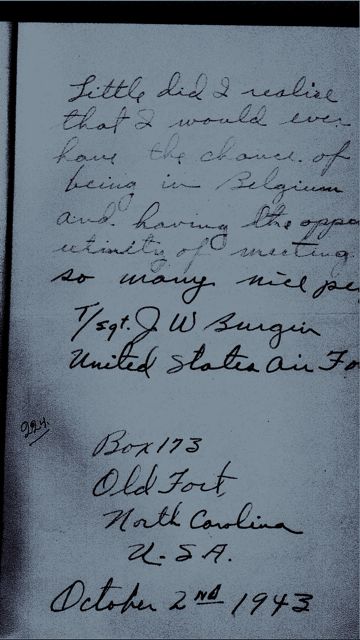 Little did I realize
that I would ever
have the chance of
being in Belgium
and having the oppo
utinity of meeting
so many nice pe
T/sgt. J W Burgin
United States Air Fo
224.
Box 173
Old Fort,
North Carolina
U-SA.
October 2nd 1943